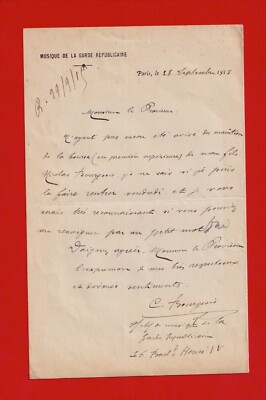 MUSIQUE DE LA GARDE RÉPUBLICAINE
Paris, le 28 Septembre 19
R. 29/9/15
Monsieur le Proviseur
N'ayant pas encore été avisé du maintien
de la bourse (en première supérieure) de mon fils
Nicolas Bourgeois je ne sais si je dois
le faire rentrer vendredi et je vous
serais très reconnaissant si vous pouviez
me renseigner par un petit mot
Daignez agréer, Monsieur le Proviseur
l'expression de mes bien respectueux
et dévoués sentiments.
C. Bourgeois
à la musique de la
Garde Républicaine
26 Boul.d Henri IV